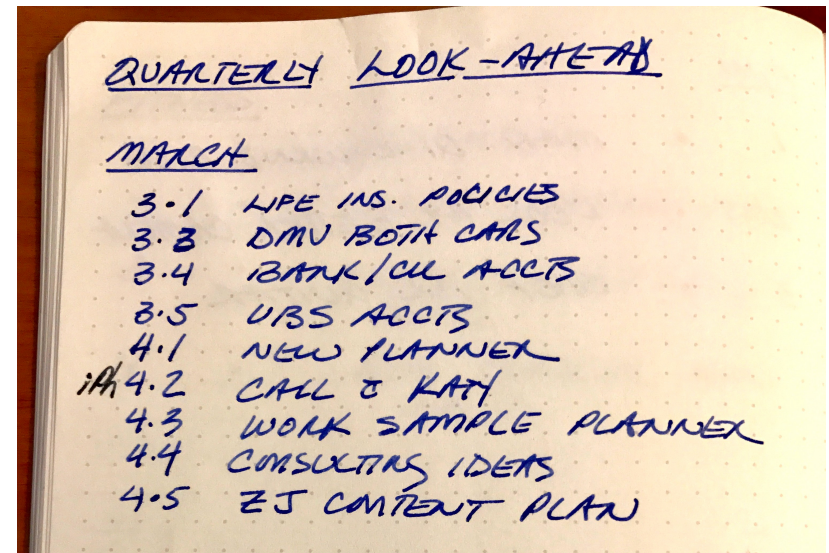 QUARTERLY LOOK-AHEAD
MARCH
3.1 LIFE INS. POLICIES
3.3 DMV BOTH CARS
3.4 BANK/CU ACCTS
3.5 UBS ACCTS
4.1 NEW PLANNER
iPh 4.2 CALL C KATY
4.3 WORK SAMPLE PLANNER
4.4 CONSULTING IDEAS
4.5 ZJ CONTENT PLAN